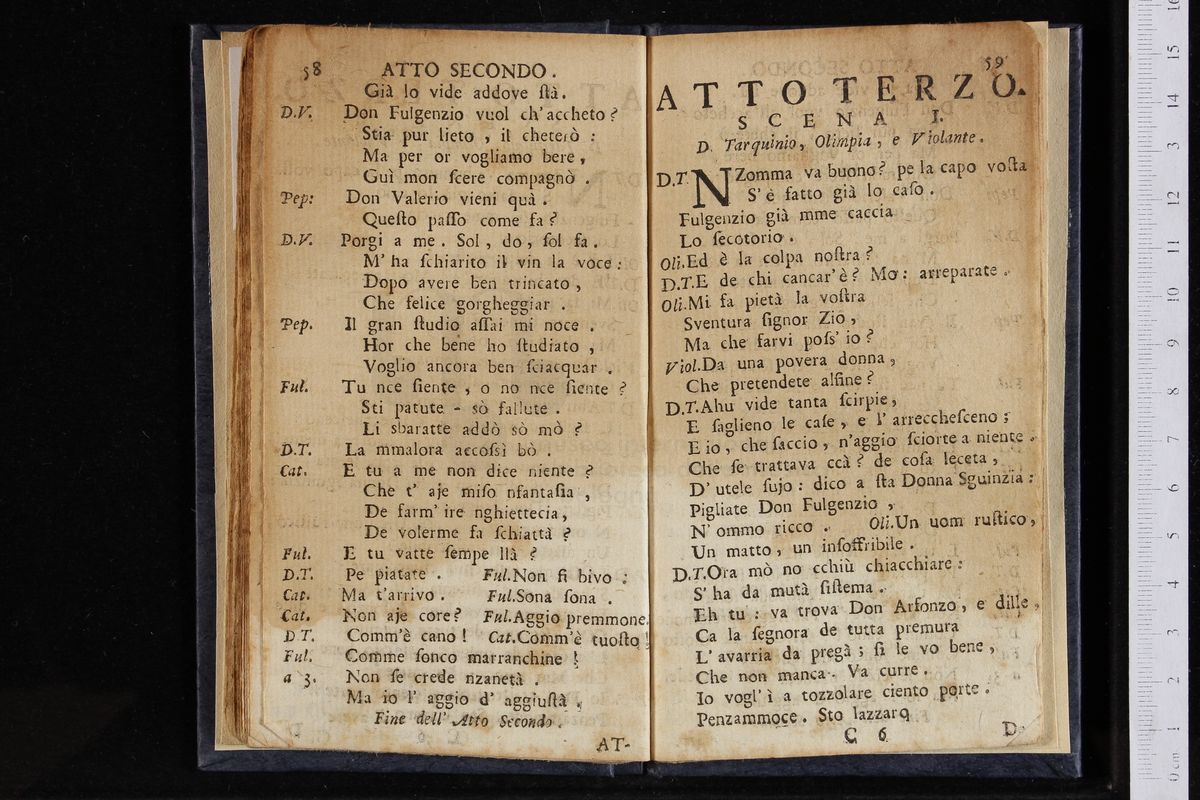 58 ATTO SECONDO.
Già lo vide addove ſtà.
D.V. Don Fulgenzio vuol ch'accheto?
Stia pur lieto, il cheterò:
Ma per or vogliamo bere,
Guì mon ſcere compagnò.
Pep: Don Valerio vieni quà.
Queſto paſſo come fa?
D.V. Porgi a me. Sol, do, ſol fa.
M'ha ſchiarito il vin la voce:
Dopo avere ben trincato,
Che felice gorgheggiar.
Pep. Il gran ſtudio aſſai mi noce.
Hor che bene ho ſtudiato,
Voglio ancora ben ſciacquar.
Ful. Tu nce ſiente, o no nce ſiente?
Sti patute - sò fallute.
Li sbaratte addò sò mò?
D.T. La mmalora accoſsì bò.
Cat. E tu a me non dice niente?
Che t'aje miſo nfantaſia,
De farm'ire nghiettecia,
De volerme fa ſchiattà?
Ful. E tu vatte ſempe llà?
D.T. Pe piatate. Ful.Non ſi bivo:
Cat. Ma t'arrivo. Ful.Sona ſona.
Cat. Non aje core? Ful.Aggio premmone.
D T. Comm'è cano! Cat.Comm'è tuoſto!
Ful. Comme ſonco marranchine!
a 3. Non ſe crede nzanetà.
Ma io l'aggio d'aggiuſtà.
Fine dell'Atto Secondo.
AT-
59
ATTO TERZO.
SCENA I.
D. Tarquinio, Olimpia, e Violante.
D.T. NZomma va buono? pe la capo voſta
S'è fatto già lo caſo.
Fulgenzio già mme caccia
Lo ſecotorio.
Oli.Ed è la colpa noſtra?
D.T.E de chi cancar'è? Mo: arreparate.
Oli.Mi fa pietà la voſtra
Sventura ſignor Zio,
Ma che farvi poſs'io?
Viol.Da una povera donna,
Che pretendete alfine?
D.T.Ahu vide tanta ſcirpie,
E ſaglieno le caſe, e l'arreccheſceno;
E io, che ſaccio, n'aggio ſciorte a niente.
Che ſe trattava ccà? de coſa leceta,
D'utele ſujo: dico a ſta Donna Sguinzia:
Pigliate Don Fulgenzio,
N'ommo ricco. Oli.Un uom ruſtico,
Un matto, un inſoffribile.
D.T.Ora mò no cchiù chiacchiare:
S'ha da mutà ſiſtema.
Eh tu: va trova Don Arfonzo, e dille,
Ca la ſegnora de tutta premura
L'avarria da pregà; ſi le vo bene,
Che non manca. Va curre.
Io vogl'ì a tozzolare ciento porte.
Penzammoce. Sto lazzaro
C 6 D.